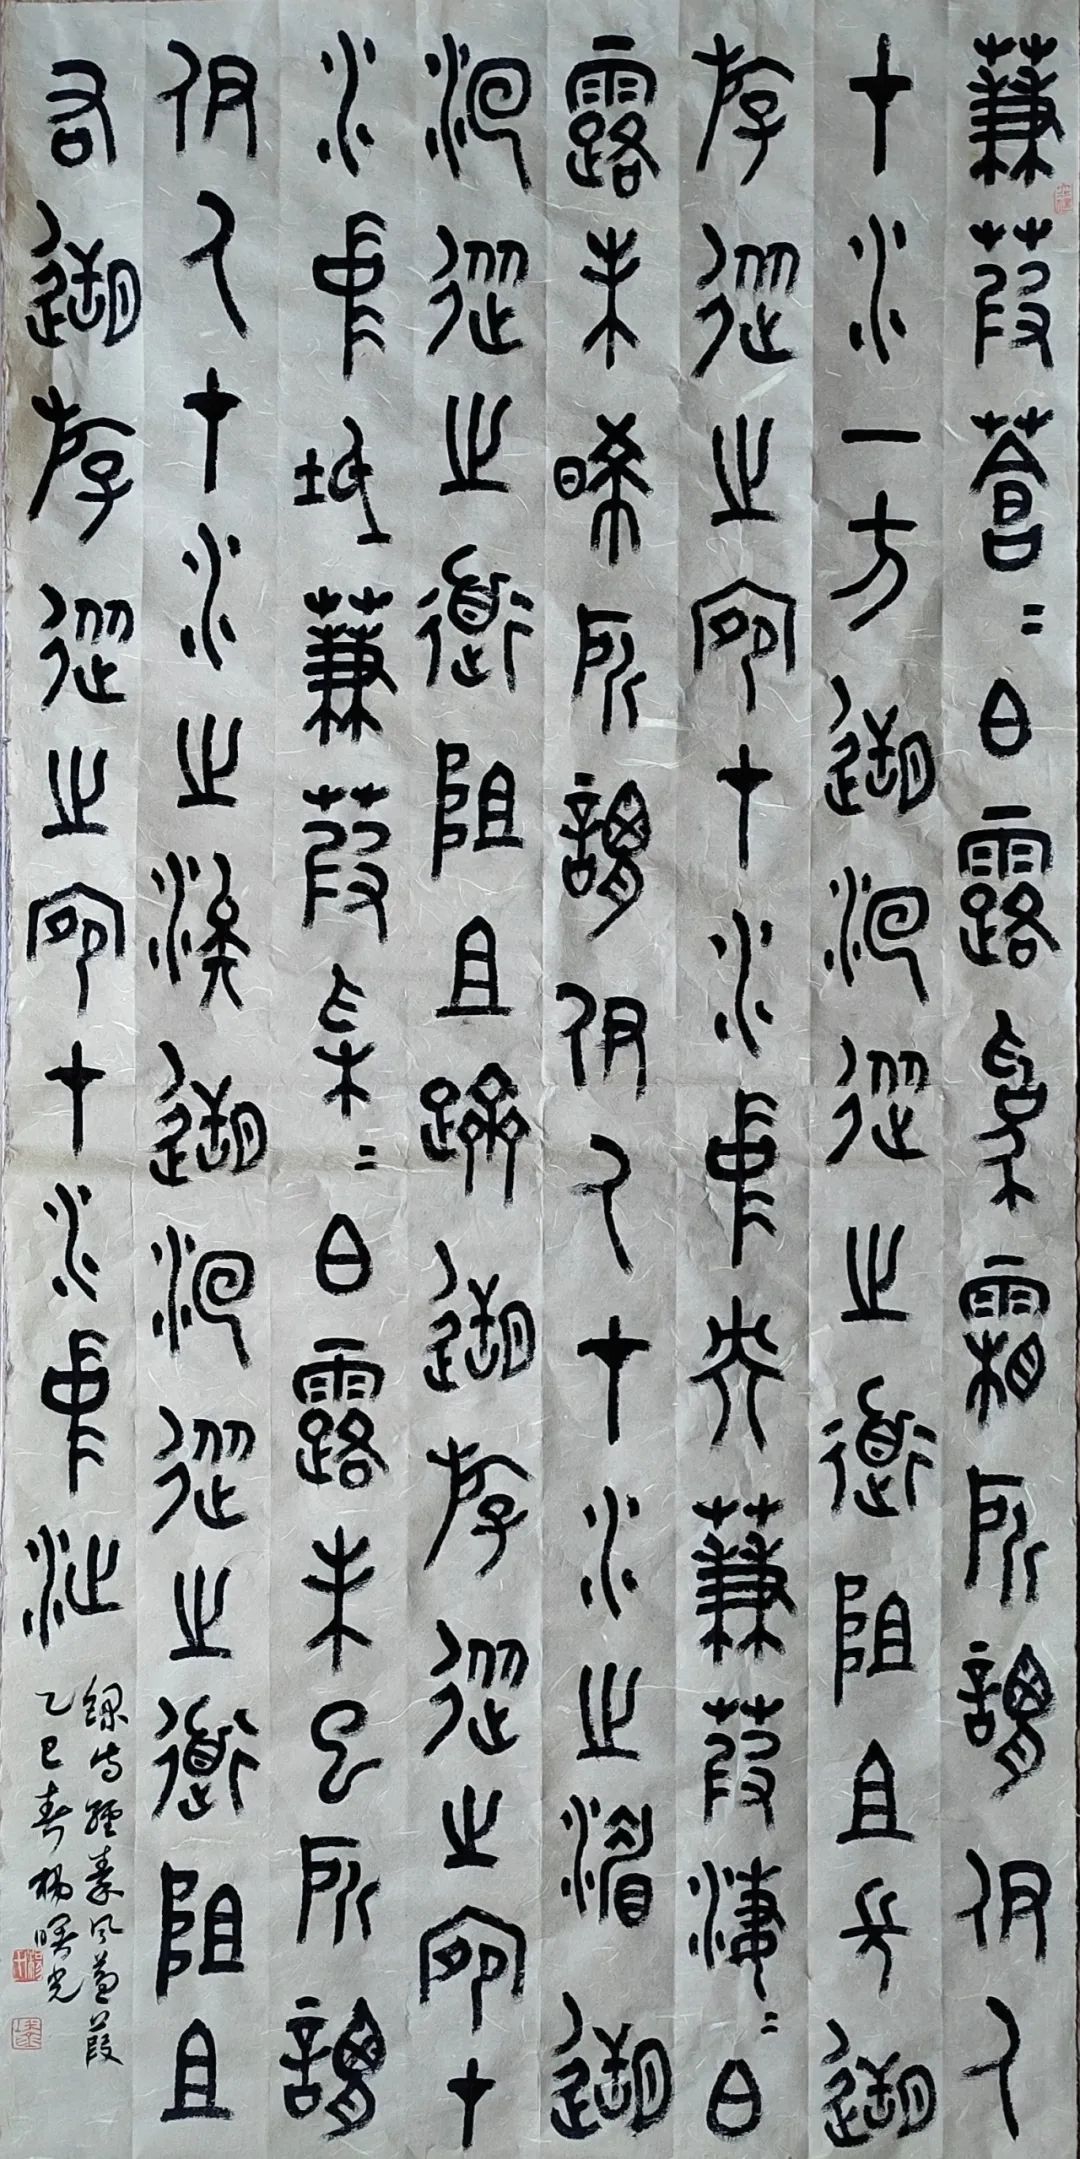 蒹葭蒼=白露為霜所謂伊人
在水一方溯洄從之道阻且長溯
游從之宛在水中央蒹葭淒=白
露未晞所謂伊人在水之湄溯
洄從之道阻且躋溯游從之宛在
水中坻蒹葭采=白露未已所謂
伊人在水之涘溯洄從之道阻且
右溯游從之宛在水中沚
錄詩經秦風蒹葭
乙巳春楊曙光